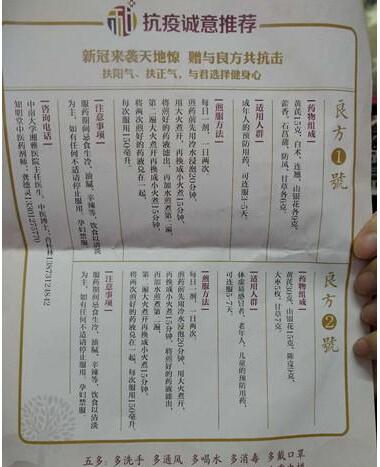 抗疫诚意推荐
新冠来袭天地惊 赠与良方共抗击
扶阳气、扶正气，与君选择健身心
良方1號
【药物组成】
黄芪15克，白术、连翘、山银花各9克，
藿香、石菖蒲、防风、甘草各6克
【适用人群】
成年人的预防用药，可连服3-5天。
【煎服方法】
每日一剂，一日两次
煎药前先用冷水浸泡20分钟，
用大火煮开，再换成小火煮15分钟，
将煎好的药液滤出，再加水煎煮第二遍，
第二遍大火煮开再换成小火煮15分钟，
将两次煎好的药液兑在一起，
每次服用150毫升。
【注意事项】
服药期间忌食生冷、油腻、辛辣等，饮食以清淡
为主，如有任何不适请停止服用，孕妇禁服
【咨询电话】
中南大学湘雅医院主任医生、中医博士
知明堂中医药剂师：龚德灵
良方2號
【药物组成】
黄芪30克，山银花15克，陈皮9克，
大枣5枚，甘草7克。
【适用人群】
体虚易感冒者，老年人，儿童的预防用药，
可连服5-7天。
【煎服方法】
每日一剂，一日两次
煎药前先用冷水浸泡20分钟，用大火煮开，
再换成小火煮15分钟，将煎好的药液滤出，
再加水煎煮第二遍，
第二遍大火煮开再换成小火煮15分钟，
将两次煎好的药液兑在一起，每次服用150毫升。
【注意事项】
服药期间忌食生冷、油腻、辛辣等，饮食以清淡
为主，如有任何不适请停止服用，孕妇禁服
五多：多洗手 多通风 多喝水 多消毒 多戴口罩